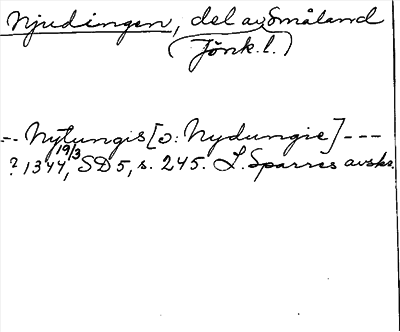 Njudingen, del av Småland
(Jönk.l.)
-- Nytungis [ɔ: Nydungie] ---
? 19/3 1344, SD 5, s. 245. L. Sparres avskr.